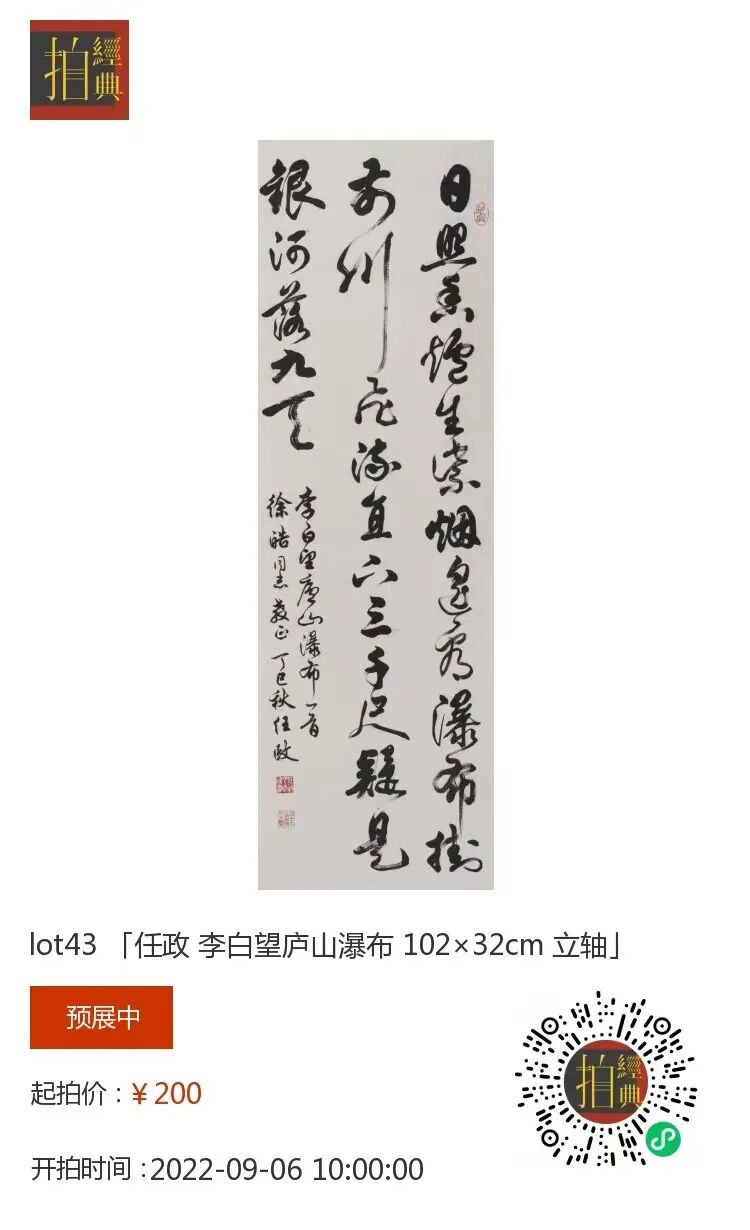 經典拍
日照香爐生紫烟遙看瀑布掛
前川飛流直下三千尺疑是
銀河落九天
李白望廬山瀑布一首
徐皓同志教正丁巳秋任政
lot43 「任政 李白望庐山瀑布 102×32cm 立轴」
预展中
起拍价：¥200
开拍时间：2022-09-06 10:00:00
經典拍